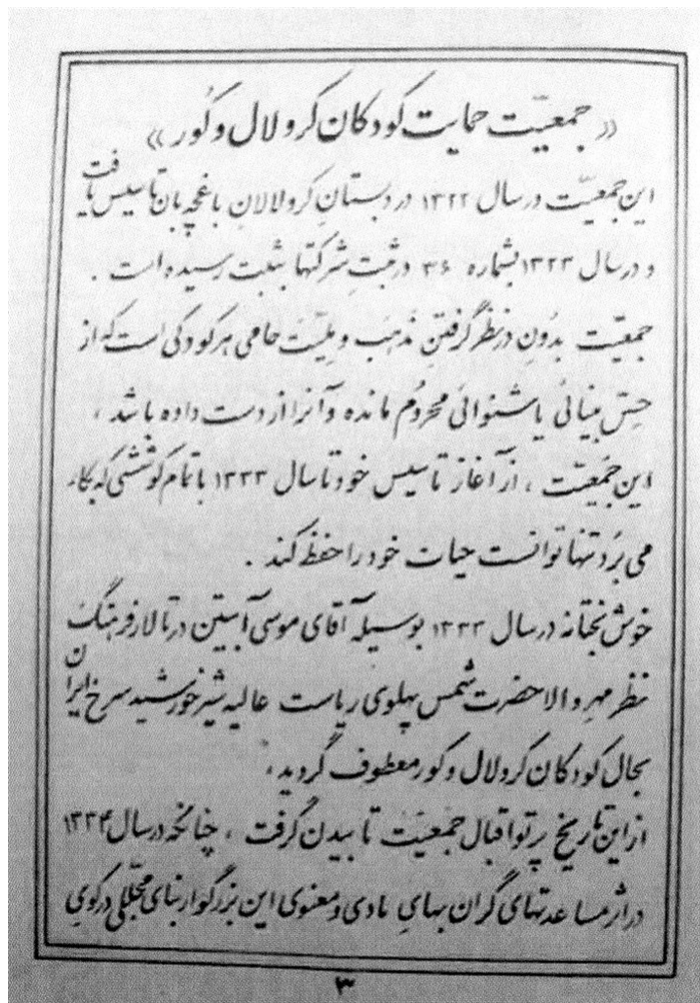 «جمعیّت حمایت کودکان کر و لال و کور»
این جمعیّت در سال ۱۳۲۲ در دبستانِ کر و لالانِ باغچه بان تأسیس یافت
و در سال ۱۳۲۳ بشماره ۳۶ در ثبتِ شرکتها بثبت رسیده است .
جمعیّت بدُونِ در نظر گرفتنِ مذهب و ملیّت حامی هر کودکی است که از
حسِ بینائی یا شنوائی محرُوم مانده و آنرا از دست داده باشد ،
این جمَعیّت ، از آغاز تأسیس خود تا سال ۱۳۳۳ با تمام کوششی که بکار
می بُرد تنها توانست حیات خود را حفظ کند .
خوش بختانه در سال ۱۳۳۳ بوسیله آقای موسی آبتین در تالار فرهنگ
نظر مهر والاحضرت شمس پهلوی ریاست عالیه شیر خورشید سرخ ایران
بحال کودکان کر و لال و کور معطوف گردید ،
از این تاریخ پرتو اقبال جمعیّت تابیدن گرفت ، چنانچه در سال ۱۳۳۴
در اثر مساعدتهای گران بهایِ مادی و معنوی این بزرگوار بنای مجلّلی در کوی
۳